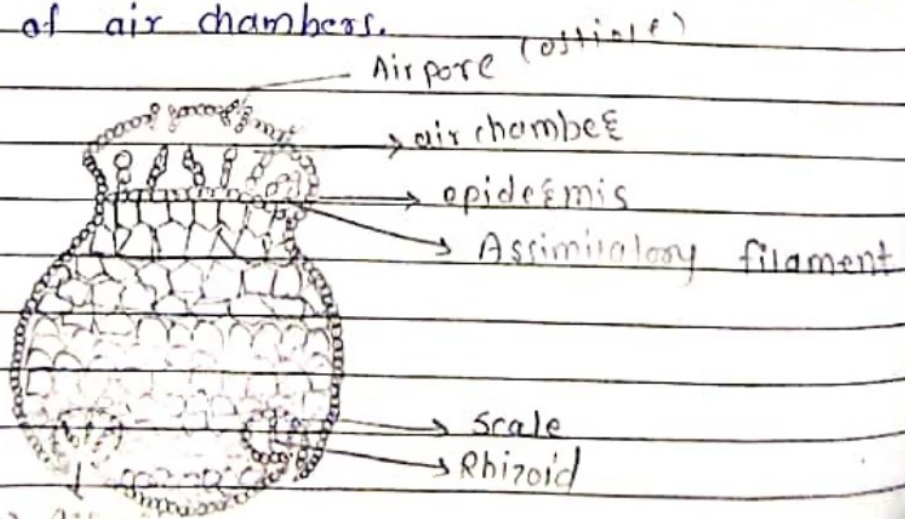 of air chambers.
Airpore (ostiole)
air chamber
epidermis
Assimilatory filament
Scale
Rhizoid